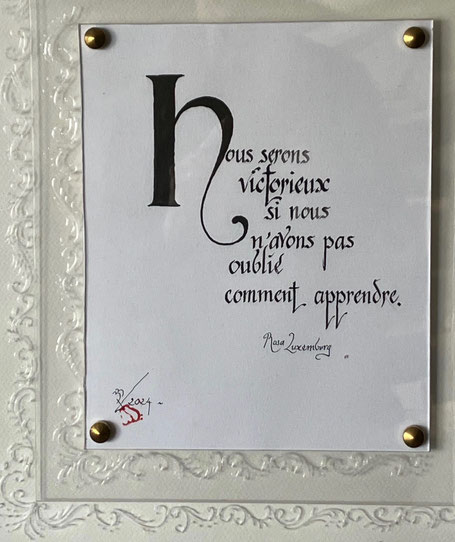 Nous serons
victorieux
si nous
n'avons pas
oublié
comment apprendre.
Rosa Luxemburg
2024